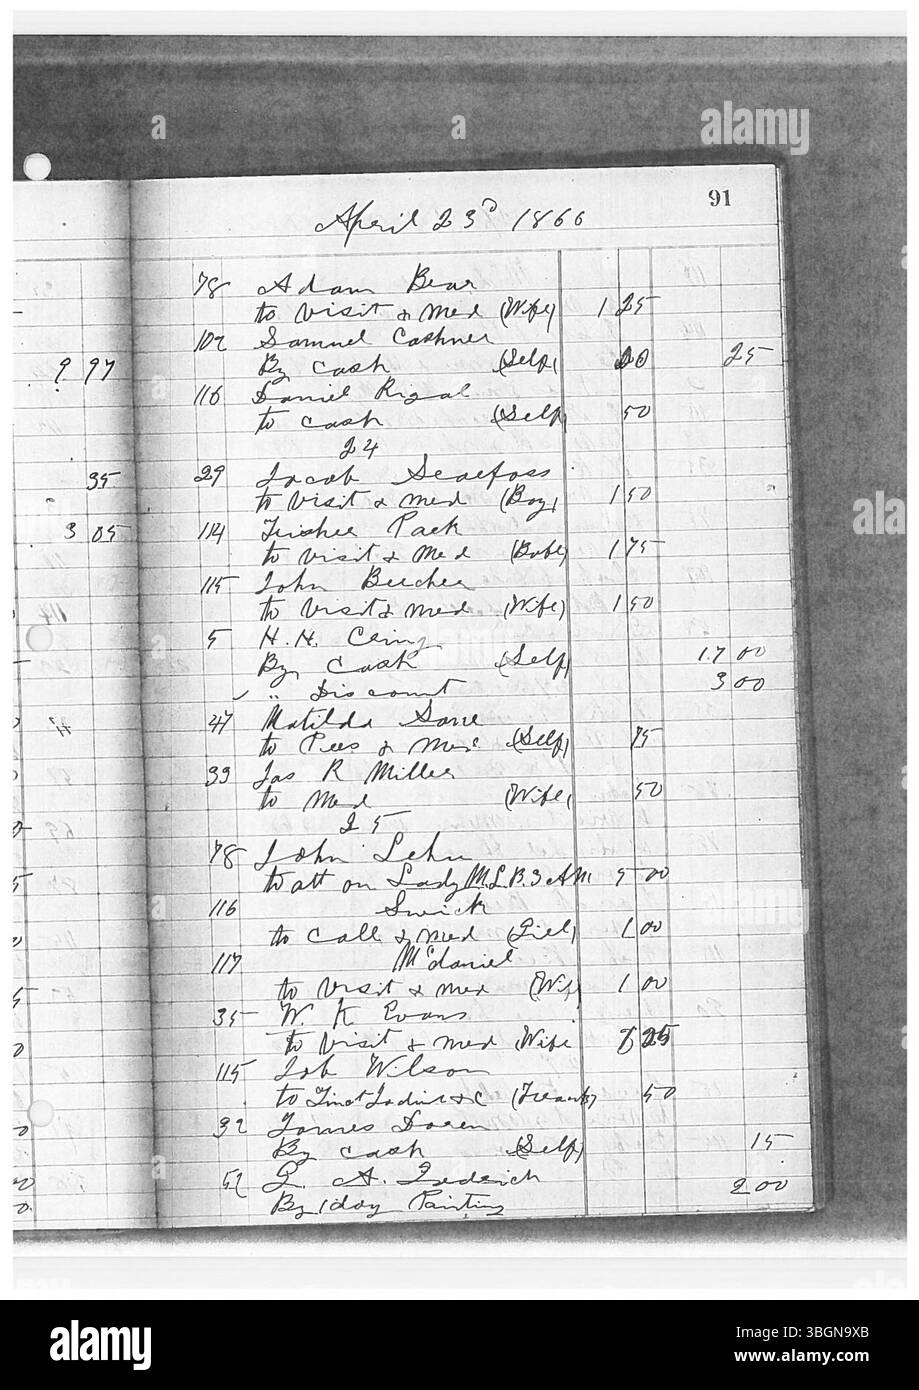 91
April 23d 1866
78 Adam Bear
to Visit & Med (Wife) 1 25
102 Samuel Cashner
By Cash (Self) 25
9 97
116 Daniel Rigal
to Cash (Self) 50
24
35
29 Jacob
to Visit & Med (Boy) 1 50
3 05
114 Pack
to Visit & Med (Babe) 1 75
115 John Beecher
to Visit & Med (Wife) 1 50
5 H. H. Cling
By Cash (Self) 17 00
" Discount 3 00
47 Matilda
to & Med (Self) 75
33 Jas R Miller
to Med (Wife) 50
25
78 John Lehr
to att on Lady M.L.B. 3 A.M. 5 00
116 Swick
to Call & Med (Girl) 1 00
117 McDaniel
to Visit & Med (Wife) 1 00
35 W. K. Evans
to Visit & Med Wife 25
115 Job Wilson
to &c 50
32 James
By Cash (Self) 15
52 A.
By 1 day Painting 2 00
alamy
alamy
Image ID: 3BGN9XB
www.alamy.com